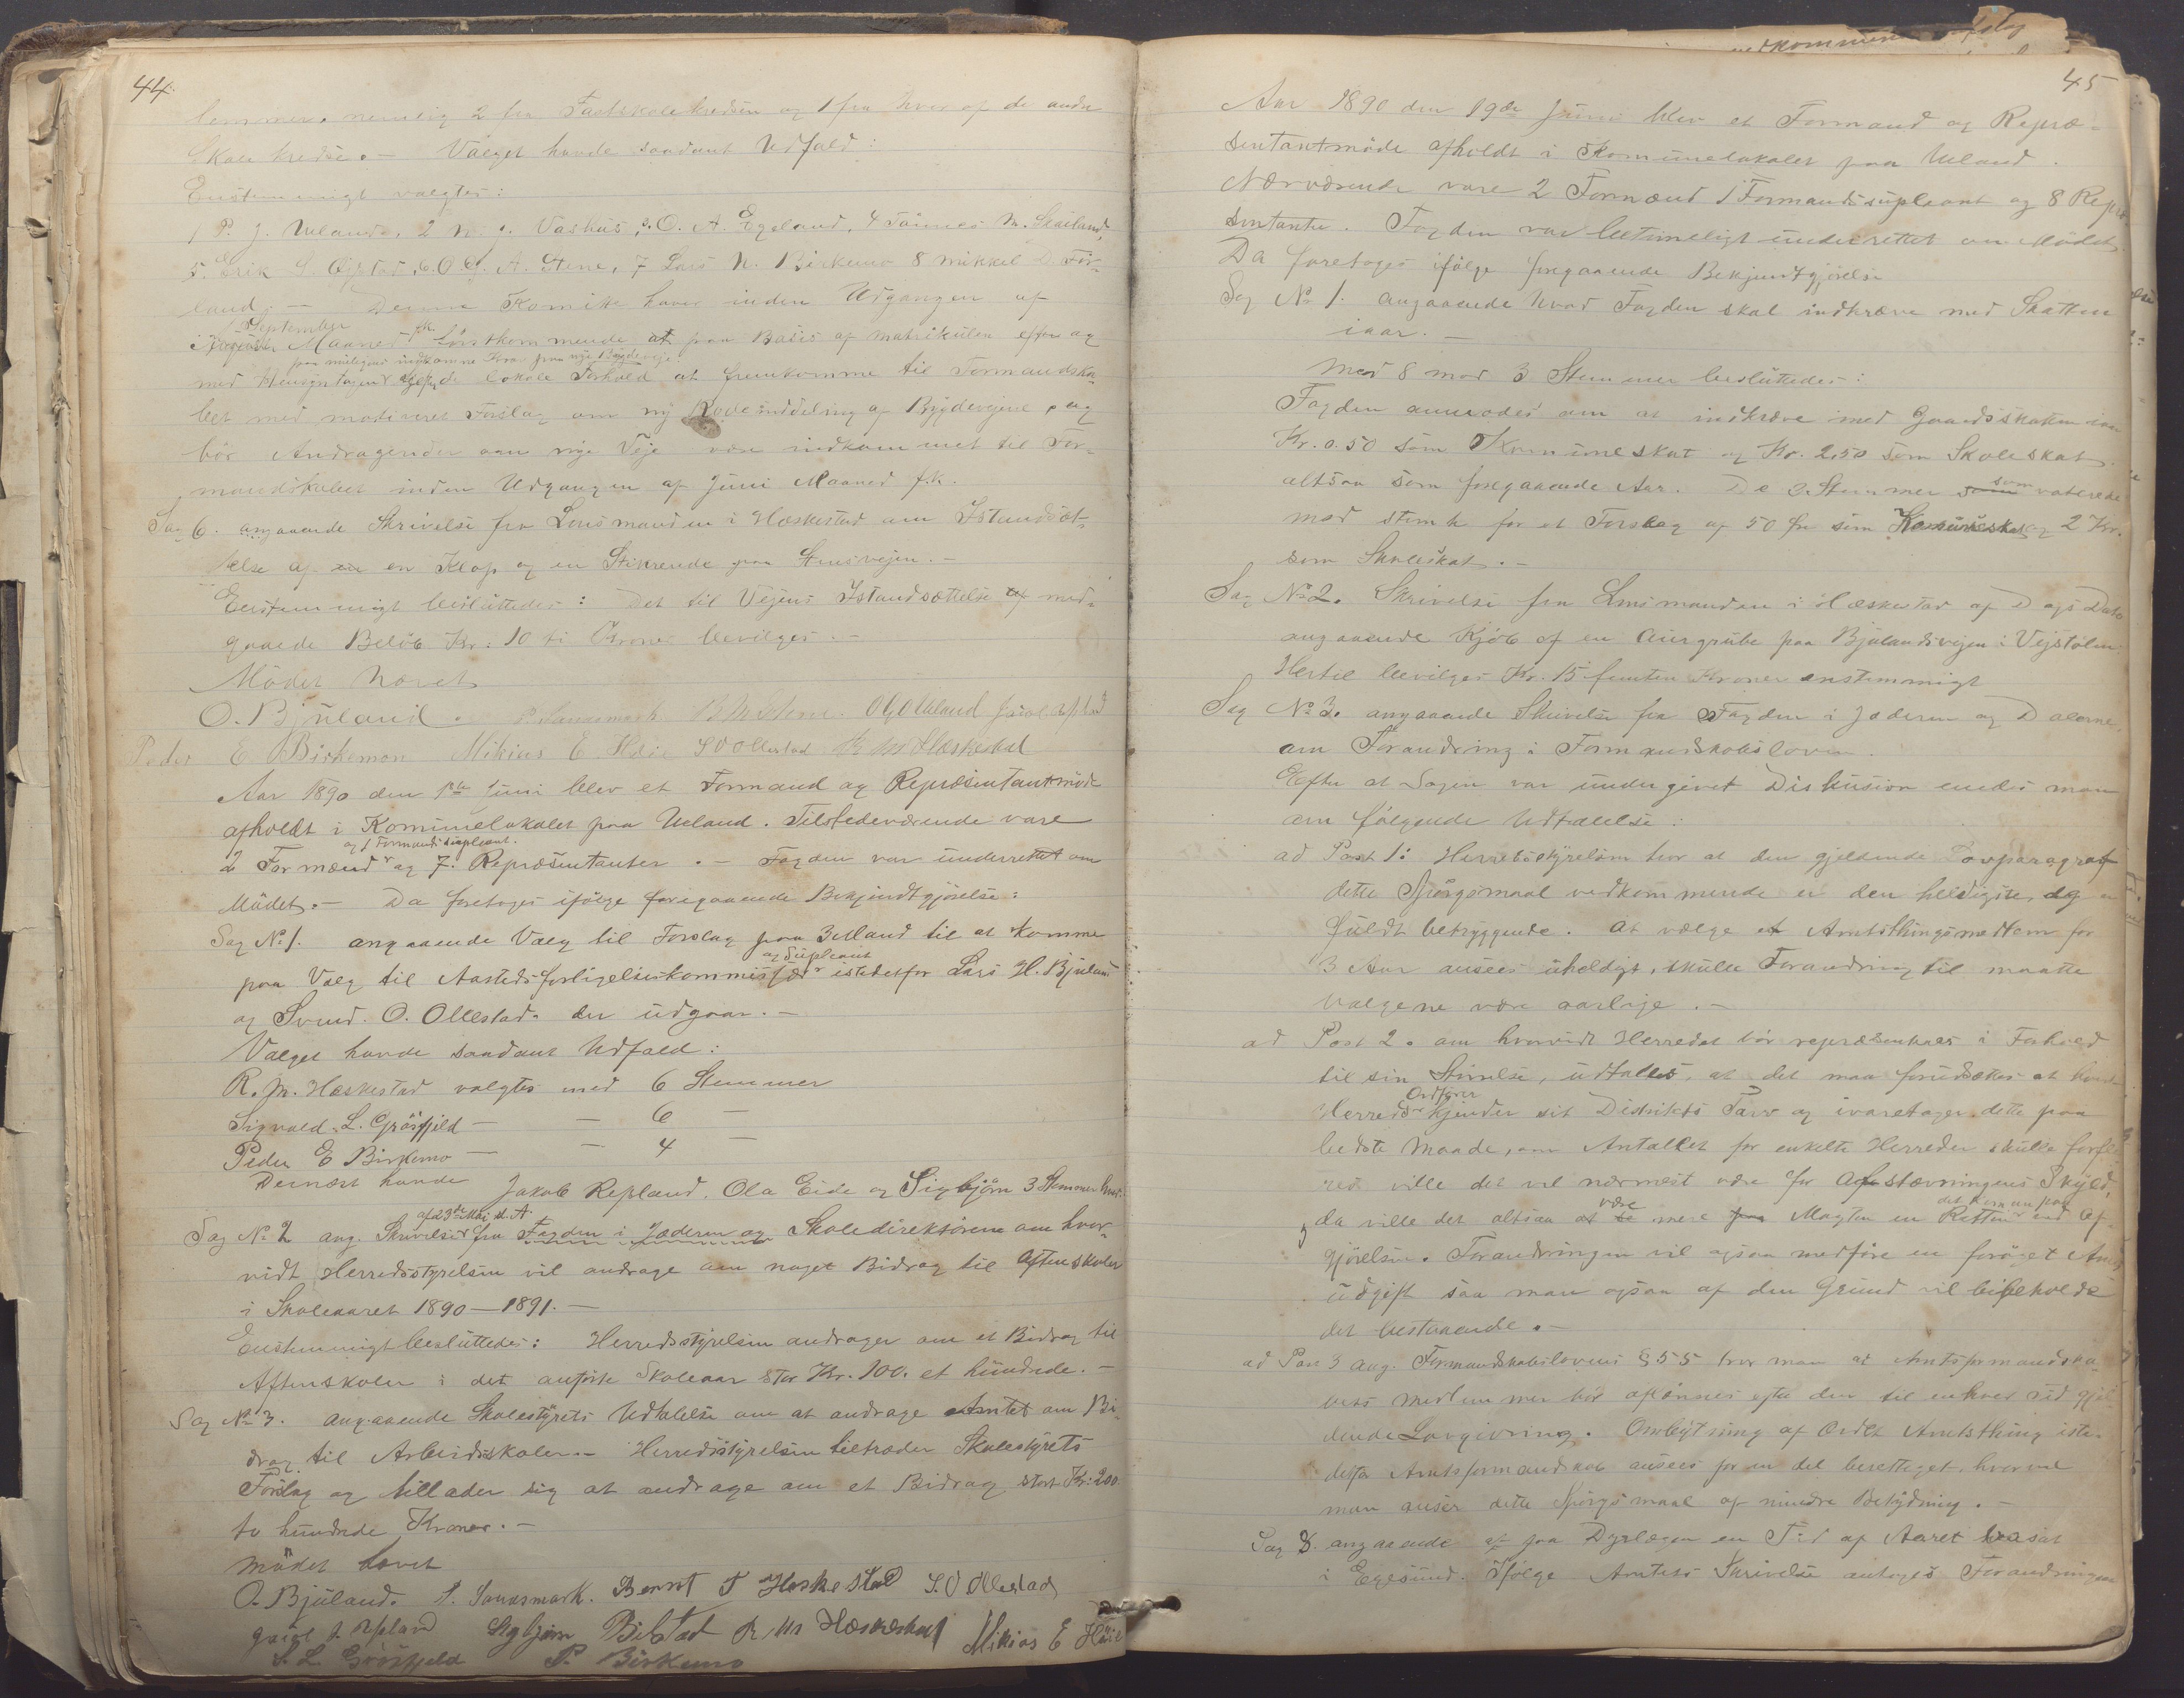 44.
lemmer, nemlig 2 fra Fastskolekredsen og 1 fra hver af de andre
Skolekredse. — Valget havde saadant Udfald:
Enstemmigt valgtes:
1 P. J. Ueland, 2 N. J. Vashus, 3. O. A. Egeland, 4 Tønnes M. Skailand,
5. Erik S. 6. O. G. A. Stene, 7 Lars N. Birkemo 8 Mikkel D. Før-
land. — Denne Komite haver inden Udgangen af
September
i Maaned førstkommende at paa Basis af Matrikulen efter og
paa muligens indkomne Krav paa nye Bygdeveje
med Hensyntagen de lokale Forhold at fremkomme til Formandska-
bet med motiveret Forslag om ny Rodeinddeling af Bygdevejene, og
bør Andragender om nye Veje være indkommet til For-
mandskabet inden Udgangen af Juni Maaned f.k.
Sag 6. angaaende Skrivelse fra Lensmanden i Hæskestad om Istandsæt-
telse af en en Klop og en Stikrende paa Stensvejen. —
Enstemmigt besluttedes: Det til Vejens Istandsættelse af med-
gaaede Beløb Kr: 10 ti Kroner bevilges. —
Mødet hævet
O. Bjuland. P. Sandsmark B M Stene O G O Ueland
Peder E Birkemon Mikias E. Høie S O Ollestad R M Hæskestad
Aar 1890 den 1ste Juni blev et Formand og Repræsentantmøde
afholdt i Komunelokalet paa Ueland. Tilstedeværende vare
og 1 Formandsupleant.
2 Formænd og 7. Repræsentanter. — Fogden var underrettet om
Mødet. — Da foretoges ifølge foregaaende Bekjendtgjørelse:
Sag No 1. angaaende Valg til Forslag paa 3 Mand til at komme
og Supleant
paa Valg til Aastedsforligelseskommissær istedetfor Lars H. Bjuland
og Svend. O. Ollestad. der udgaar. —
Valget havde saadant Udfald:
R. M. Hæskestad valgtes med 6 Stemmer
Sigvald. L. Grøsfjeld — — 6 —
Peder E Birkemo — — 4 —
Dernæst havde Jakob Repland. Ola Eide og Sigbjørn 3 Stemmer hver.
af 23de Mai d. A.
Sag No 2 ang. Skrivelse fra Fogden i Jæderen og Skoledirektørene om hvor-
vidt Herredsstyrelsen vil andrage om noget Bidrag til Aftenskoler
i Skoleaaret 1890—1891. —
Enstemmigt besluttedes: Herredsstyrelsen andrager om et Bidrag til
Aftenskoler i det anførte Skoleaar stor Kr. 100. et hundrede. —
Sag No 3. angaaende Skolestyrets Udtalelse om at andrage Amtet om Bi-
drag til Arbeidsskoler. — Herredsstyrelsen tiltræder Skolestyrets
Forslag og tillader sig at andrage om et Bidrag stort Kr: 200
to hundrede Kroner. —
Mødet hævet
O. Bjuland. P. Sandsmark. Bernt T Hæskestad S. O Ollestad
Sigbjørn Bilstad R. M Hæskestad Mikias E Høie
S. L. Grøsfjeld P. Birkemo
45
Aar 1890 den 19de Juni blev et Formand og Repræ-
sentantmøde afholdt i Komunelokalet paa Ueland.
Nærværende vare 2 Formænd 1 Formandssupleant og 8 Repræ
sentanter. Fogden var betimeligt underrettet om Mødet.
Da foretoges ifølge foregaaende Bekjendtgjørelse
Sag No 1. angaaende hvad Fogden skal indkræve med Skatten
iaar. —
Med 8 mod 3 Stemmer besluttedes:
Fogden anmodes om at indkræve med Gaardsskatten iaar
Kr. 0.50 som Komuneskat og Kr. 2,50 som Skoleskat.
altsaa som foregaaende Aar. De 3 Stemmer som som voterede
mod stemte for et Forslag af 50 Øre som Komuneskat og 2 Kr.
som Skoleskat. —
Sag No 2. Skrivelse fra Lensmanden i Hæskestad af Dags Dato
angaaende Kjøb af en Aurgrube paa Bjulandsvejen i Vejstølen
Hertil bevilges Kr. 15 femten Kroner enstemmigt
Sag No 3. angaaende Skrivelse fra Fogden i Jæderen og Dalerne
om Forandring i Formandskabsloven.
Efter at Sagen var undergivet Diskusion enedes man
om følgende Udtalelse:
ad Post 1: Herredsstyrelsen tror at den gjeldende Lovparagraf
dette Spørgsmaal vedkommende er den heldigste, og er
fuldt betryggende. At vælge et Amtsthingsmedlem for
3 Aar ansees uheldigt, skulle Forandring til maatte
Valgene være aarlige. —
ad Post 2. om hvorvidt Herredet bør repræsenteres i Forhold
til sin Størrelse, udtales, at det maa forudsættes at hvert
Ordfører
Herreds kjender sit Distrikts Tarv og ivaretager dette paa
bedste Maade, om Antallet for enkelte Herreder skulle
ville det vel nærmest være for Afstævningens Skyld,
være det kom an paa
og da ville det altsaa at mere paa Magten en Retten ved Af-
gjørelsen. Forandringen vil ogsaa medføre en forøget Amts
udgift saa man ogsaa af den Grund vil bibeholde
det bestaaende. —
ad Post 3 ang. Formandskabslovens § 55 tror man at Amtsformandska-
bets Medlemmer bør aflønnes efter den til enhver Tid gjel-
dende Lovgivning. Ombytning af Ordet Amtsthing iste-
detfor Amtsformandskab ansees for en del berettiget, hvorvel
man anser dette Spørgsmaal af mindre Betydning. —
Sag angaaende at faa Dyrlægen en Tid af Aaret bosat
i Egersund. Ifølge Amtets Skrivelse antages Forandringen